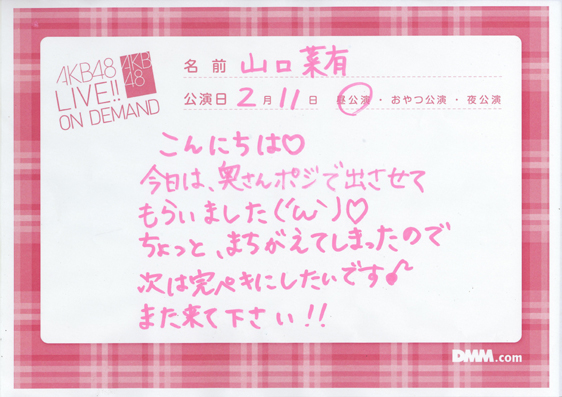 AKB48
LIVE!!
ON DEMAND
AKB
48
名前 山口菜有
公演日 2月11日 昼公演・おやつ公演・夜公演
こんにちは♡
今日は、奥さんポジで出させて
もらいました(´ω`)♡
ちょっと、まちがえてしまったので
次は完ペキにしたいです♪
また来て下さい!!
DMM.com